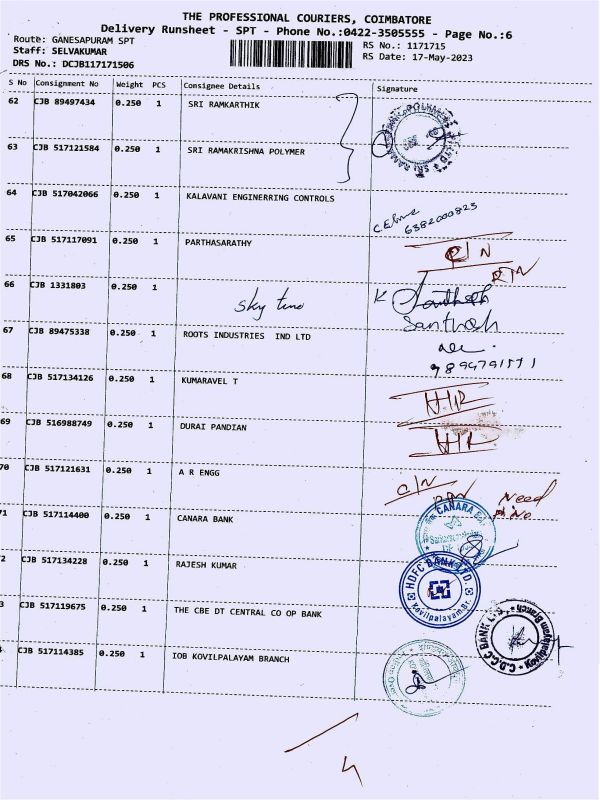 THE PROFESSIONAL COURIERS, COIMBATORE
Delivery Runsheet - SPT - Phone No.:0422-3505555 - Page No.:6
Route: GANESAPURAM SPT
RS No.: 1171715
Staff: SELVAKUMAR
RS Date: 17-May-2023
DRS No.: DCJB117171506
S No Consignment No Weight PCS Consignee Details Signature
62 CJB 89497434 0.250 1 SRI RAMKARTHIK
63 CJB 517121584 0.250 1 SRI RAMAKRISHNA POLYMER
64 CJB 517042066 0.250 1 KALAVANI ENGINERRING CONTROLS
6382000823
65 CJB 517117091 0.250 1 PARTHASARATHY
C/N
66 CJB 1331803 0.250 1
sky
K
Santhosh
67 CJB 89475338 0.250 1 ROOTS INDUSTRIES IND LTD
68 CJB 517134126 0.250 1 KUMARAVEL T
69 CJB 516988749 0.250 1 DURAI PANDIAN
70 CJB 517121631 0.250 1 A R ENGG
C/N
Need
No
71 CJB 517114400 0.250 1 CANARA BANK
CANARA
2 CJB 517134228 0.250 1 RAJESH KUMAR
HDFC BANK LTD.
Kovilpalayam.Br.
3 CJB 517119675 0.250 1 THE CBE DT CENTRAL CO OP BANK
C.D.C.C BANK LTD.,
Kovilpalayam Branch
CJB 517114385 0.250 1 IOB KOVILPALAYAM BRANCH